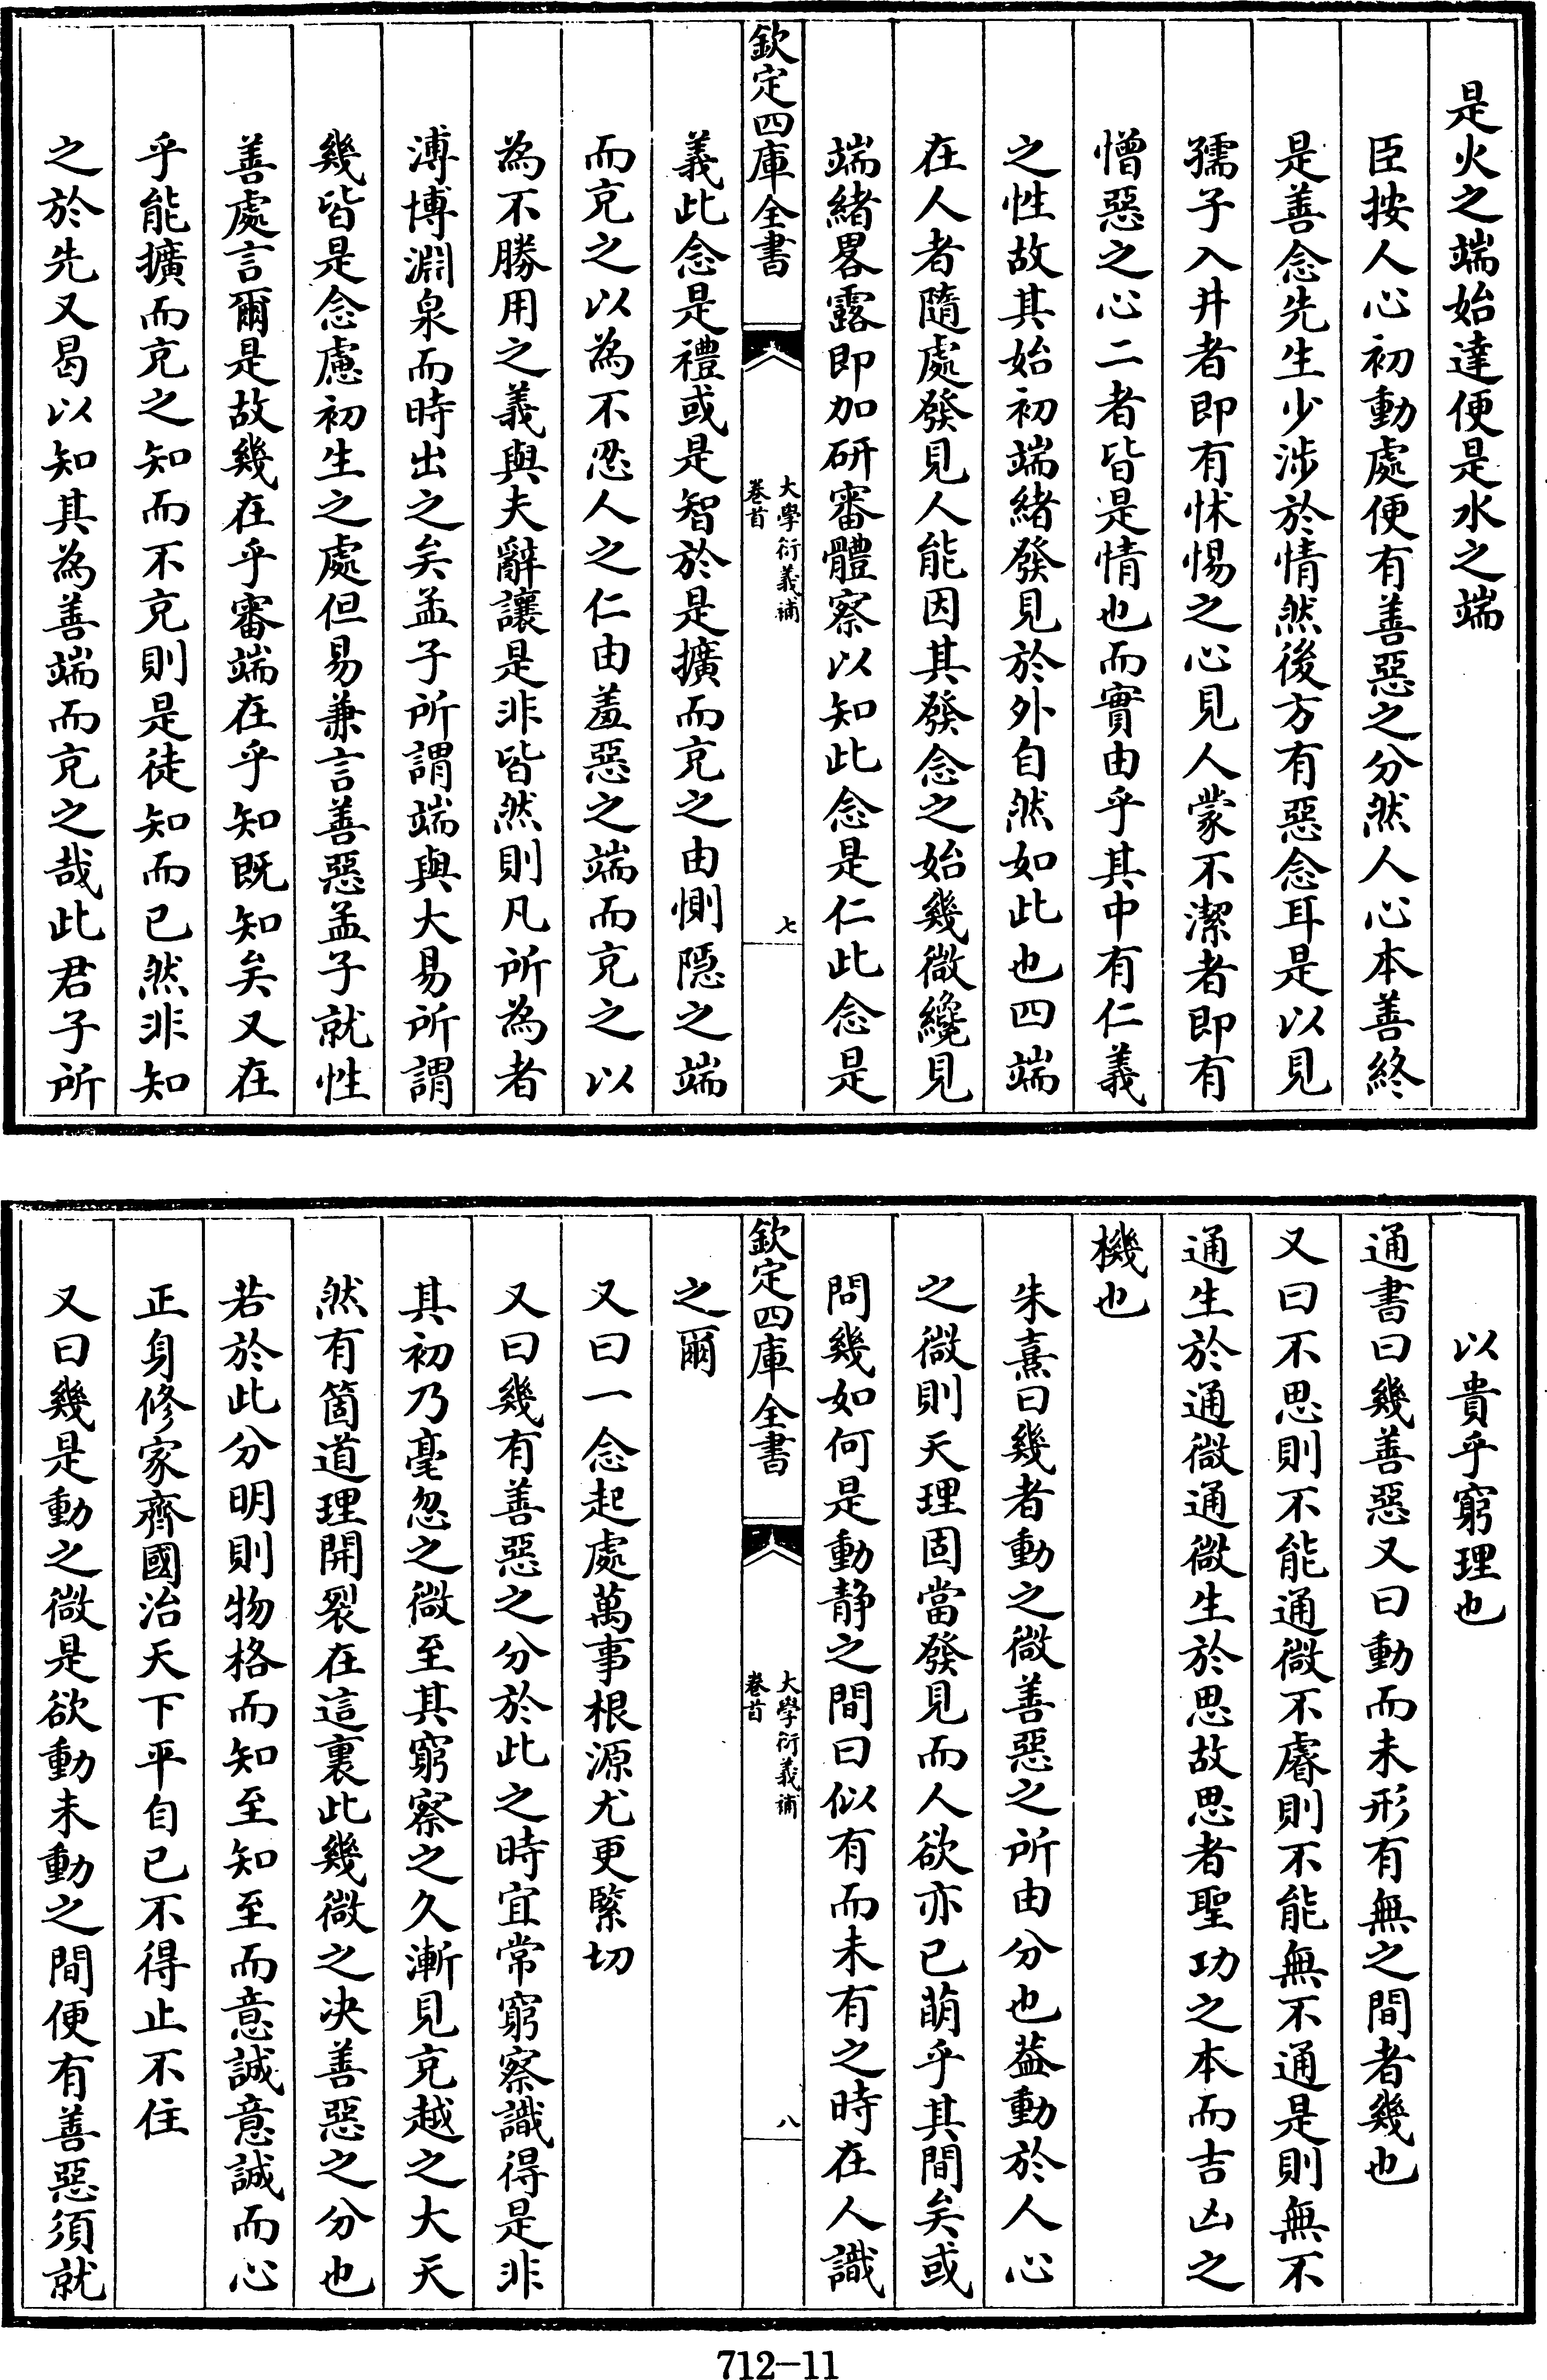 是火之端始達便是水之端
臣按人心初動處便有善惡之分然人心本善終
是善念先生少涉於情然後方有惡念耳是以見
孺子入井者即有怵惕之心見人蒙不潔者即有
憎惡之心二者皆是情也而實由乎其中有仁義
之性故其始初端緒發見於外自然如此也四端
在人者隨處發見人能因其發念之始幾微纔見
端緒畧露即加研審體察以知此念是仁此念是
欽定四庫全書
大學衍義補
卷首
七
義此念是禮或是智於是擴而充之由惻隠之端
而充之以為不忍人之仁由羞惡之端而充之以
為不勝用之義與夫辭讓是非皆然則凡所為者
溥博淵泉而時出之矣孟子所謂端與大易所謂
幾皆是念慮初生之處但易兼言善惡孟子就性
善處言爾是故幾在乎審端在乎知既知矣又在
乎能擴而充之知而不充則是徒知而已然非知
之於先又曷以知其為善端而充之哉此君子所
以貴乎窮理也
通書曰幾善惡又曰動而未形有無之間者幾也
又曰不思則不能通微不睿則不能無不通是則無不
通生於通微通微生於思故思者聖功之本而吉凶之
機也
朱熹曰幾者動之微善惡之所由分也葢動於人心
之微則天理固當發見而人欲亦已萌乎其間矣或
問幾如何是動静之間曰似有而未有之時在人識
欽定四庫全書
大學衍義補
卷首
八
之爾
又曰一念起處萬事根源尤更緊切
又曰幾有善惡之分於此之時宜常窮察識得是非
其初乃毫忽之微至其窮察之久漸見充越之大天
然有箇道理開裂在這裏此幾微之决善惡之分也
若於此分明則物格而知至知至而意誠意誠而心
正身修家齊國治天下平自已不得止不住
又曰幾是動之微是欲動未動之間便有善惡須就
712-11